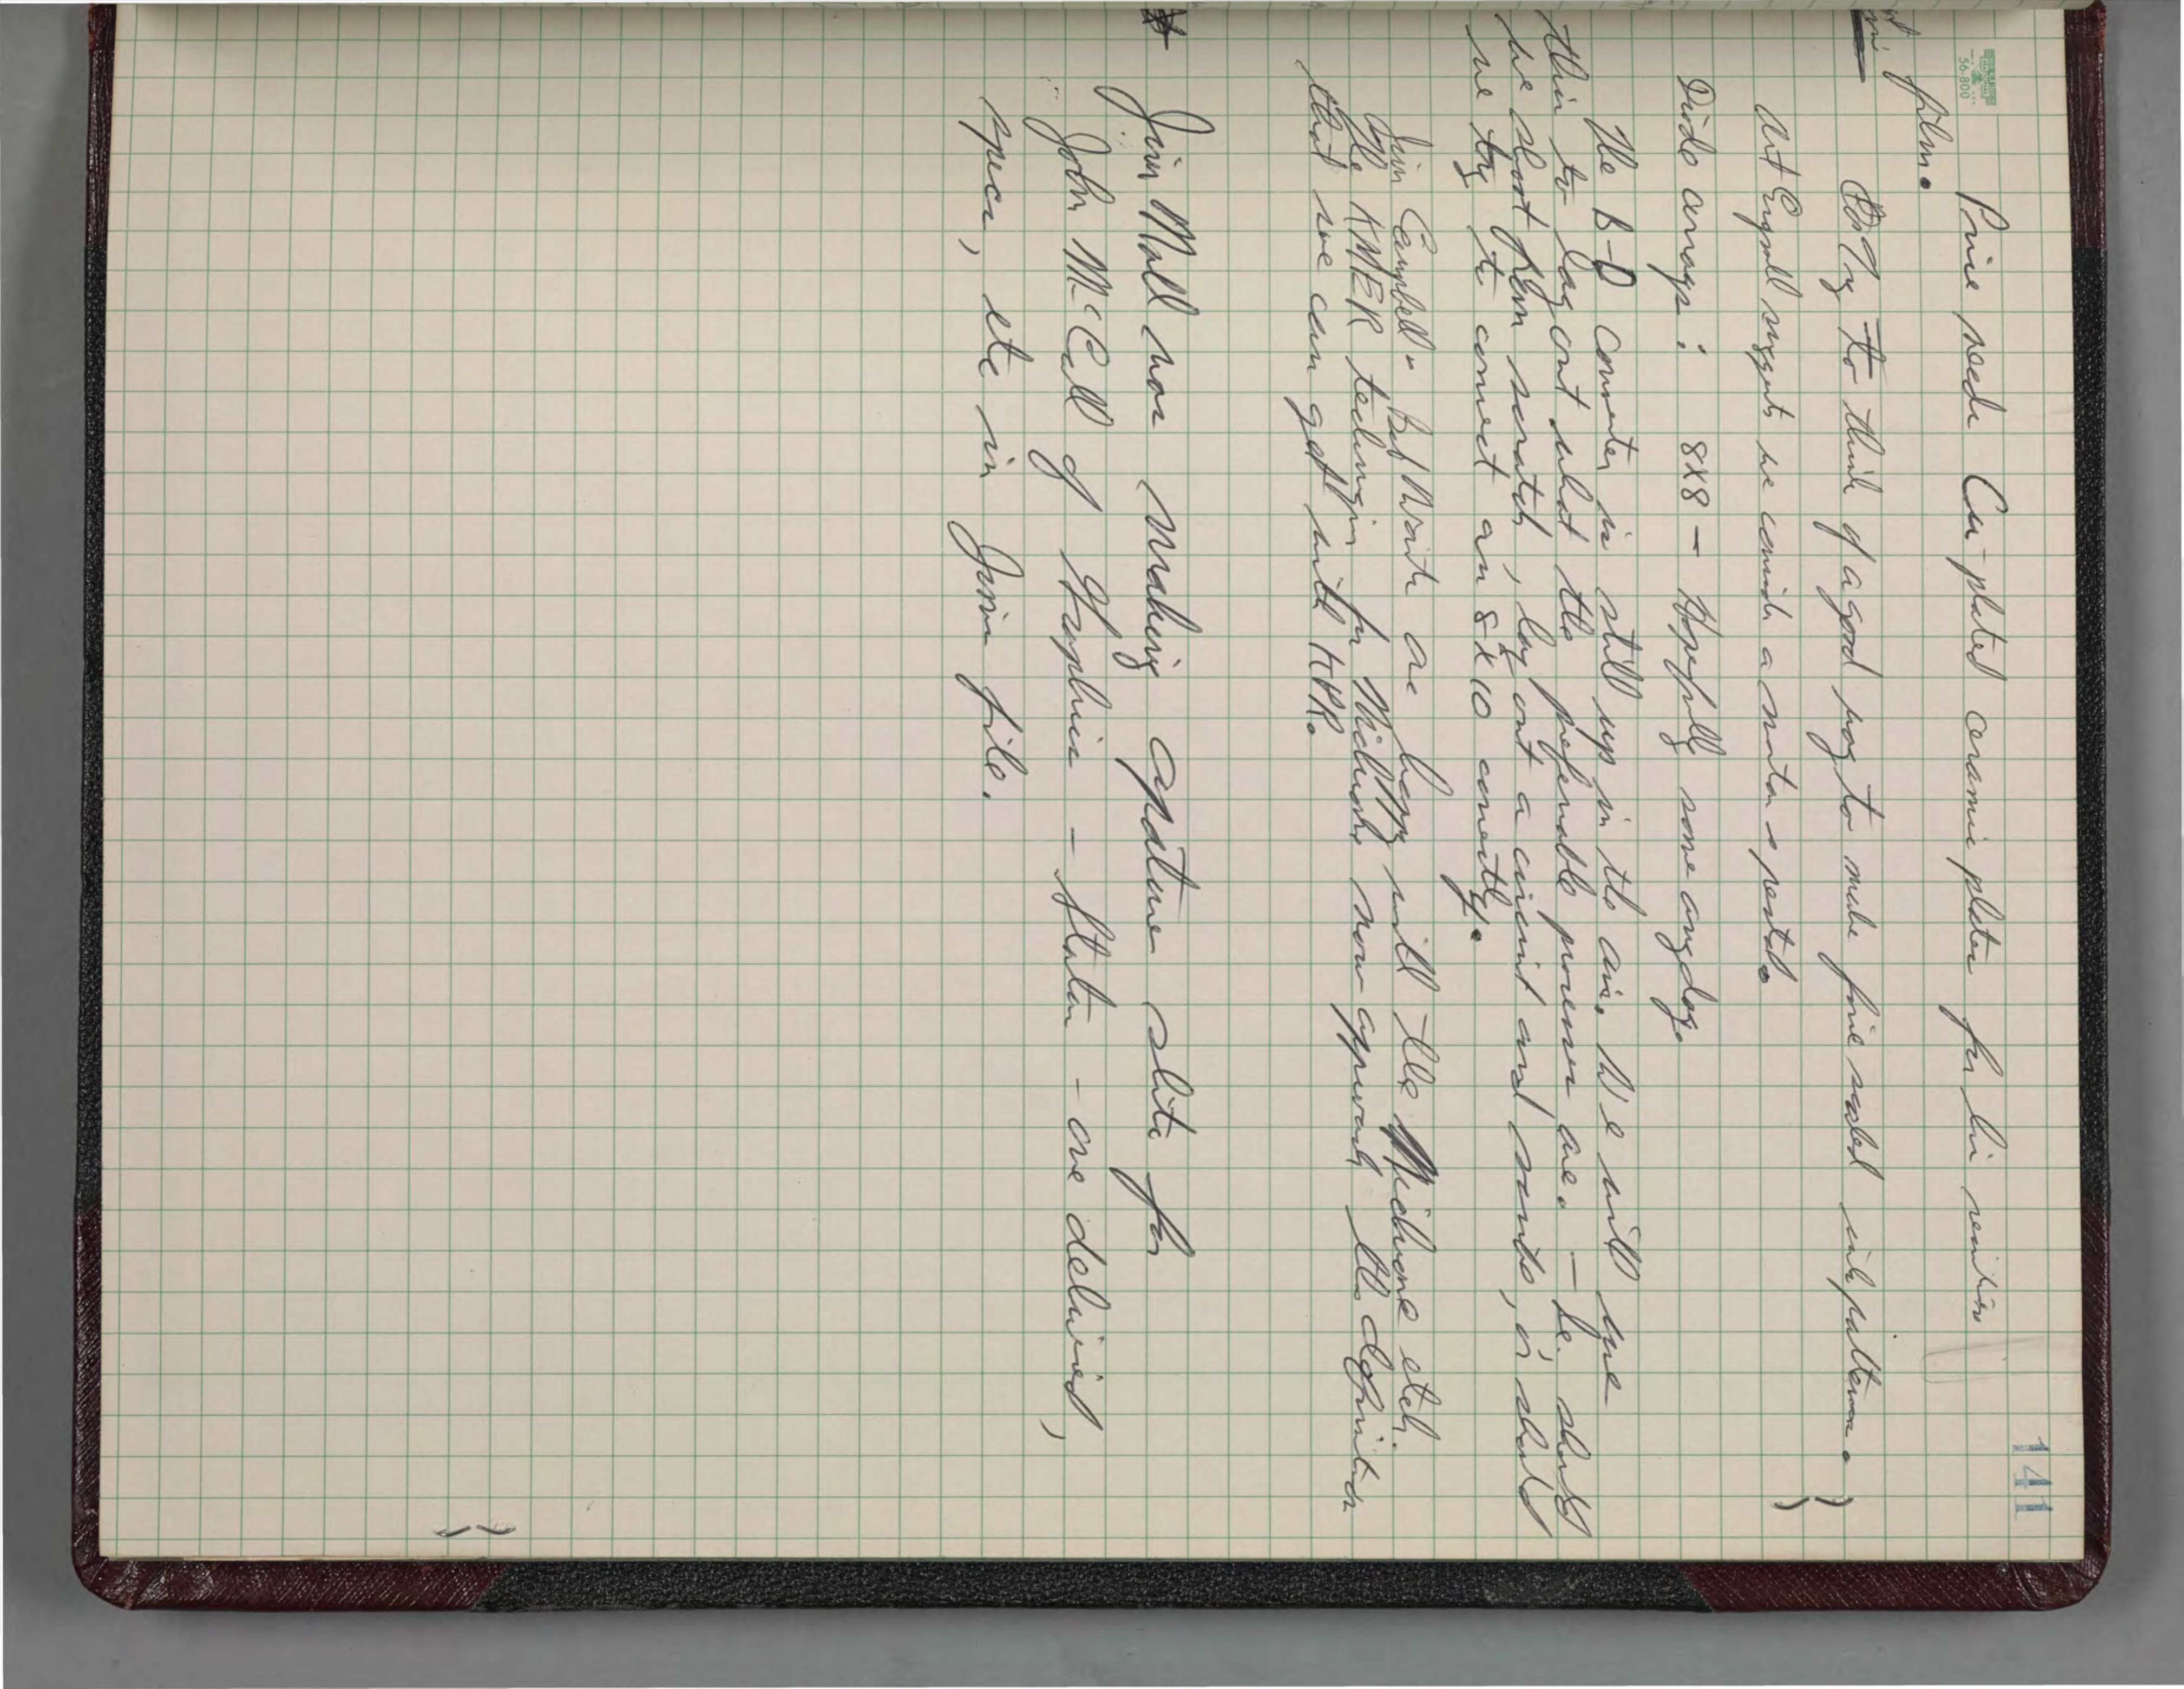 141
56-800
Price needs Cu-plated ceramic plates for his resistive
film.
Try to think of a good way to make fine scaled ink patterns.
Art Engvall suggests we consider a
Diode arrays: 8X8 – Hopefully some any day.
The B-D Converter is still up in the air. We will use
this to lay out what the preferable processes are. – Ie. should
we start from scratch, lay out a circuit and masks, or should
we try to correct an 8 X 10 correctly.
Jim Campbell & Bob Waits are happy with the Michrome etch.
The KMER technique for Michrome now approach the definition
that we can get with KPR.
Jim Nall now making aperture slits for
John McCall of Graphics – Status – one delivered,
specs, etc in Jim's file.